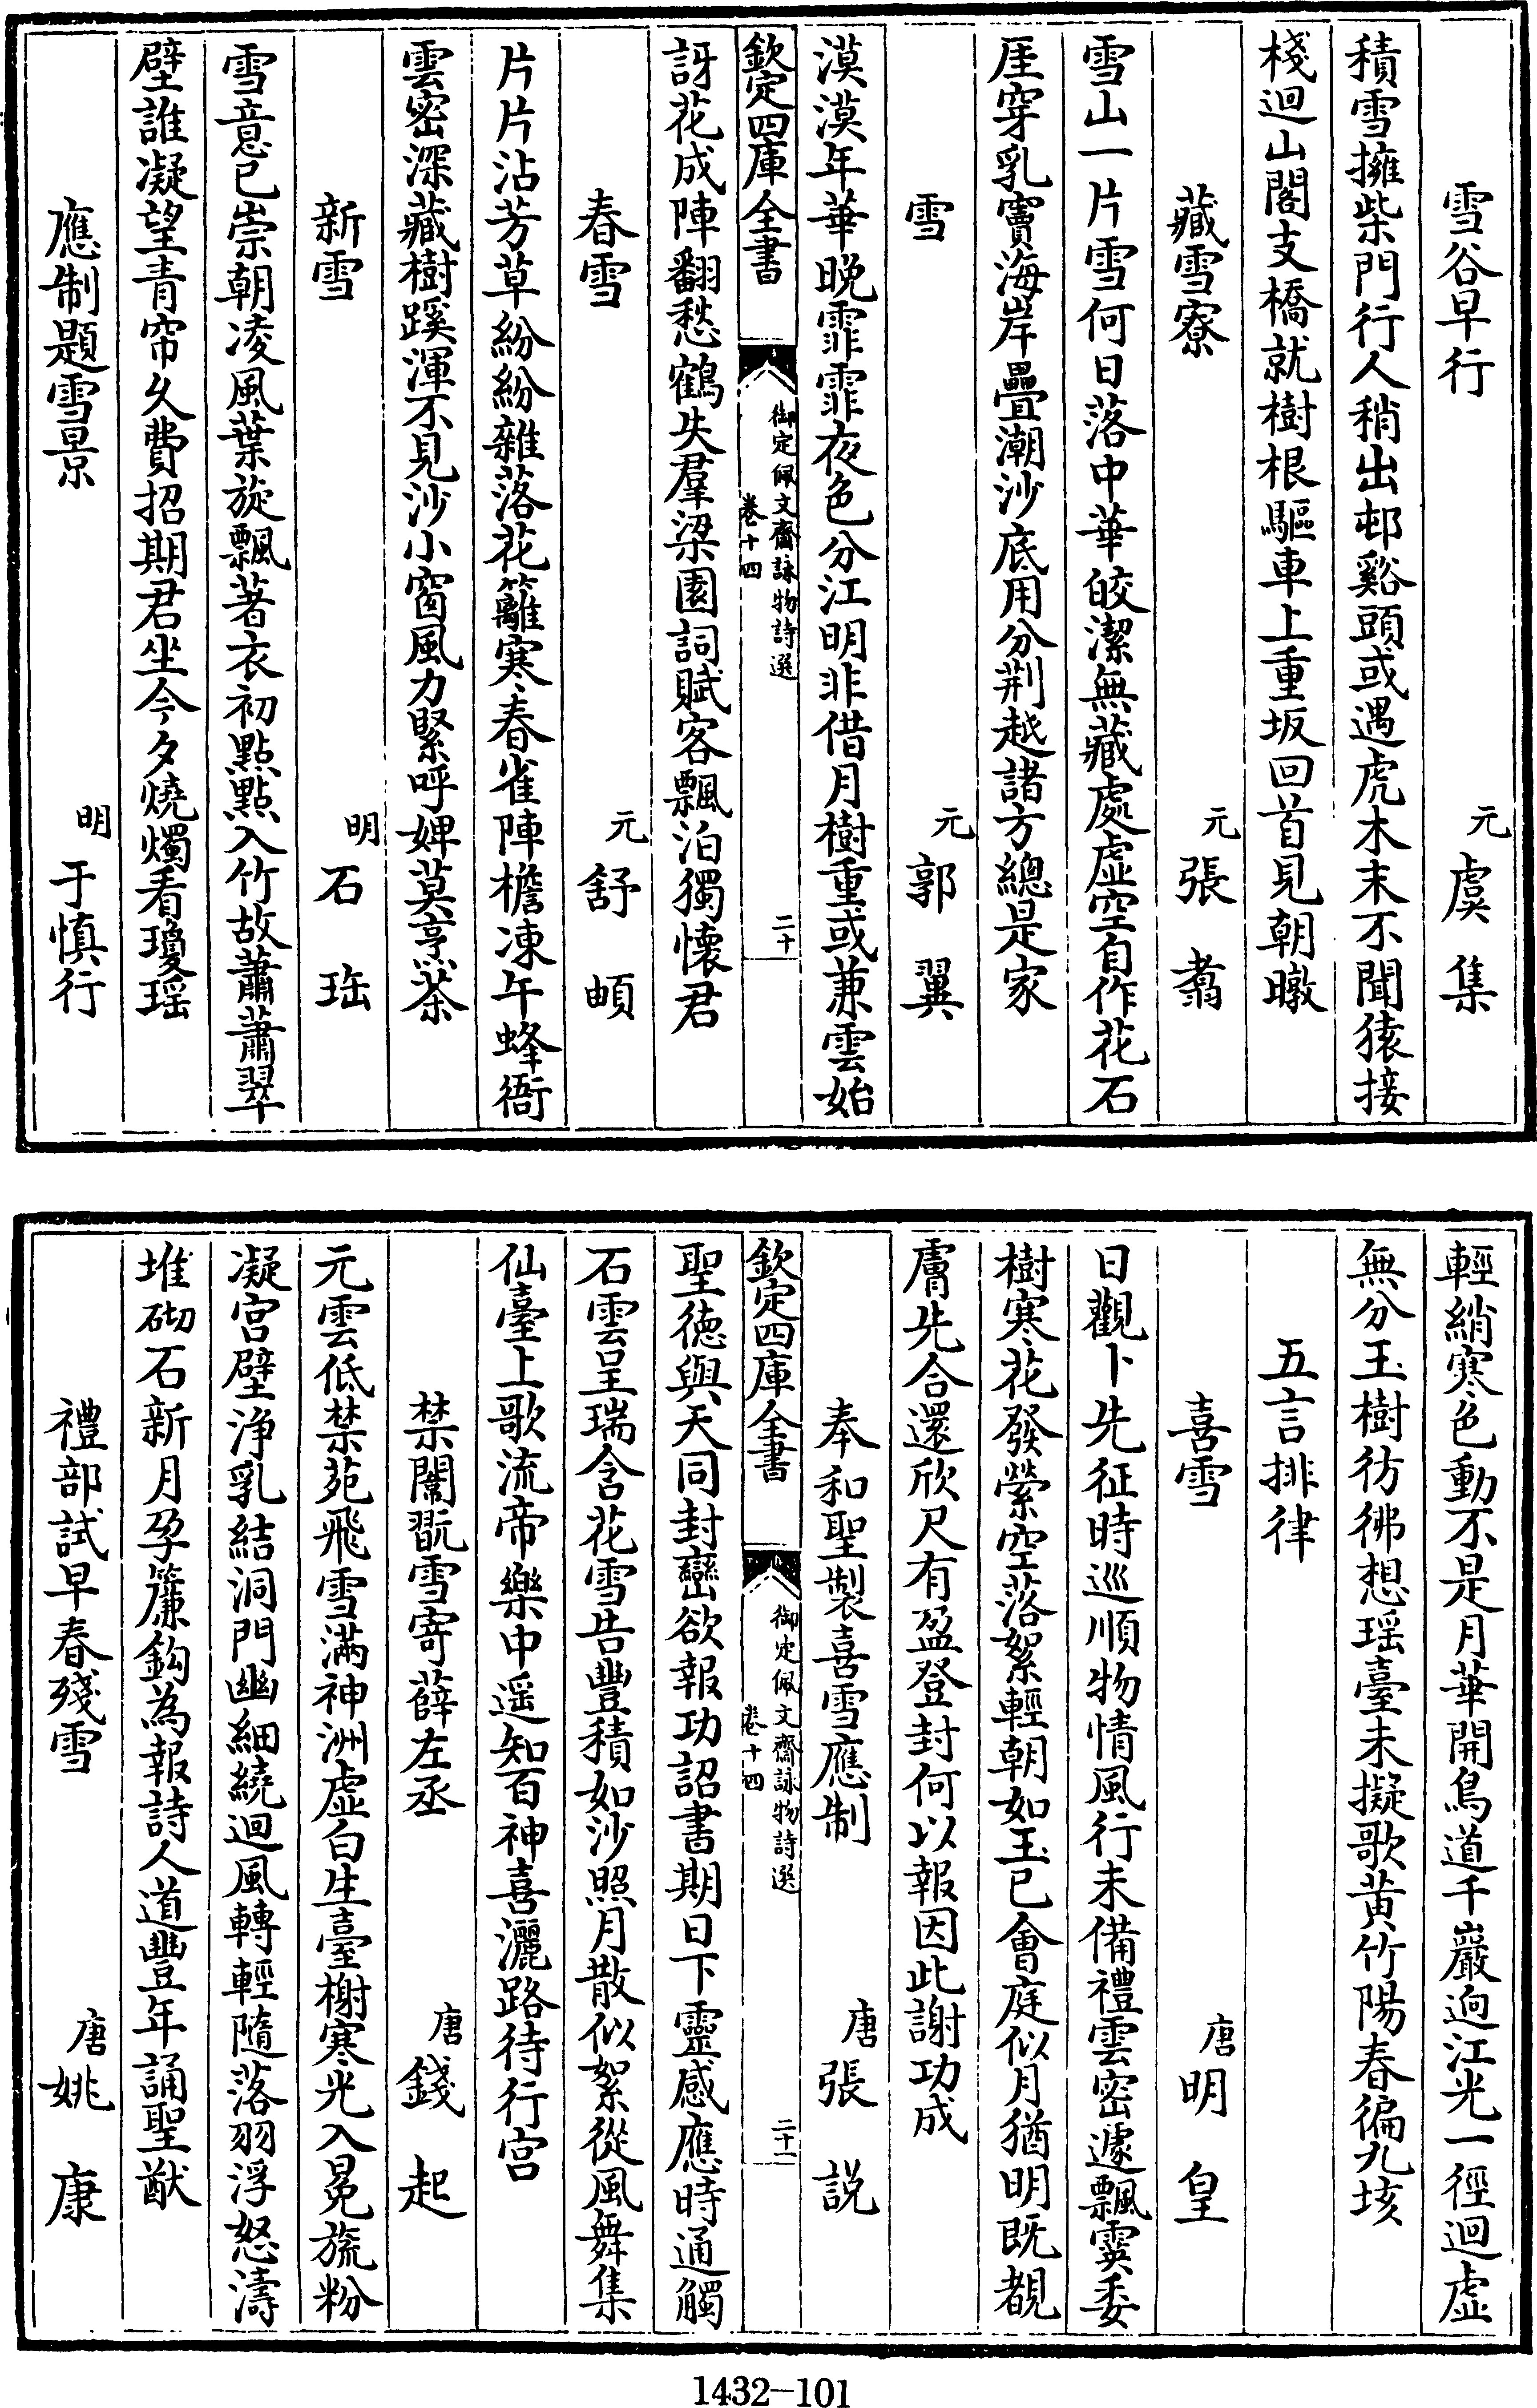 雪谷早行　元虞集
積雪擁柴門行人稍出邨谿頭或遇虎木末不聞猿接
棧迴山閣支橋就樹根驅車上重坂回首見朝暾
藏雪寮　元張翥
雪山一片雪何日落中華皎潔無藏處虚空自作花石
厓穿乳竇海岸疊潮沙底用分荆越諸方總是家
雪　元郭翼
漠漠年華晚霏霏夜色分江明非借月樹重或兼雲始
欽定四庫全書　御定佩文齋詠物詩選　卷十四　二十
訝花成陣翻愁鶴失羣梁園詞賦客飄泊獨懷君
春雪　元舒頔
片片沾芳草紛紛雜落花籬寒春雀陣檐凍午蜂衙
雲密深藏樹蹊渾不見沙小窗風力緊呼婢莫烹茶
新雪　明石珤
雪意已崇朝凌風葉旋飄著衣初點點入竹故蕭蕭翠
壁誰凝望青帘久費招期君坐今夕燒燭看瓊瑶
應制題雪景　明于慎行
輕綃寒色動不是月華開鳥道千巖迥江光一徑迴虚
無分玉樹彷彿想瑶臺未擬歌黄竹陽春徧九垓
五言排律
喜雪　唐明皇
日觀卜先征時巡順物情風行未備禮雲密遽飄霙委
樹寒花發縈空落絮輕朝如玉已會庭似月猶明既覩
膚先合還欣尺有盈登封何以報因此謝功成
奉和聖製喜雪應制　唐張説
欽定四庫全書　御定佩文齋詠物詩選　卷十四　二十一
聖德與天同封巒欲報功詔書期日下靈感應時通觸
石雲呈瑞含花雪告豐積如沙照月散似絮從風舞集
仙臺上歌流帝樂中遥知百神喜灑路待行宫
禁闈翫雪寄薛左丞　唐錢起
元雲低禁苑飛雪滿神洲虚白生臺榭寒光入冕旒粉
凝宫壁浄乳結洞門幽細繞迴風轉輕隨落羽浮怒濤
堆砌石新月孕簾鈎為報詩人道豐年誦聖猷
禮部試早春殘雪　唐姚康
1432—101